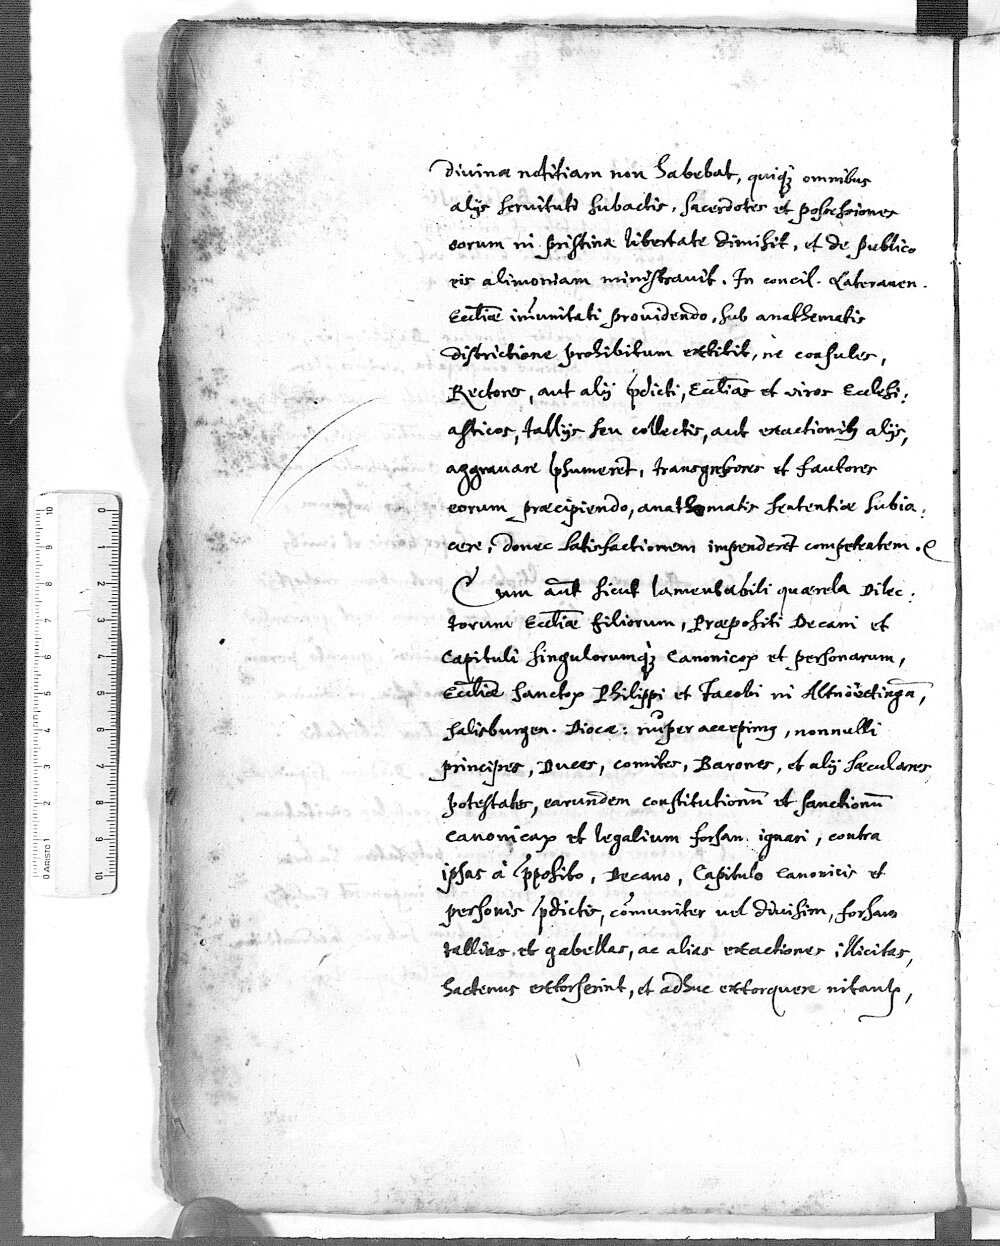 diuinæ notitiam non habebat, quiq₃ omnibus
alijs seruituti subactis, sacerdotes et possessiones
eorum in pristinæ libertate dimisit, et de publico
eis alimoniam ministrauit. In concil. Lateranen.
Eccliæ im̃unitati prouidendo, sub anathematis
districtione prohibitum extitit, ne consules,
Rectores, aut alij p̄dicti, Eccliãs et viros Ecclesi:
asticos, tallijs seu collectis, aut exactionib₃ alijs,
aggrauare p̄sumerẽt, transgressores et fautores
eorum præcipiendo, anathematis sententiæ subia:
cere, donec satisfactionem impenderẽt competentem.
Cum aũt sicut lamentabili quærela Dilec:
torum Eccliæ filiorum, Præpositi Decani et
Capituli singulorumq₃ Canonicoꝝ et personarum,
Eccliæ Sanctoꝝ Philippi et Jacobi in Altnöetingã,
Salisburgen. Diocæ: nuper accepimꝰ, nonnulli
principes, Duces, comites, Barones, et alij sæculares
potestates, earundem constitutionũ et sanctionũ
canonicaꝝ et legalium forsan ignari, contra
ipsas à p̄posito, Decano, Capitulo Canonicis et
personis p̄dictis, cõmuniter uel diuisim, forsan
tallias et gabellas, ac alias exactiones illicitas,
hactenus extorserint, et adhuc extorquere nitantꝛ,
10 9 8 7 6 5 4 3 2 1 0 ARISTO
0 1 2 3 4 5 6 7 8 9 10